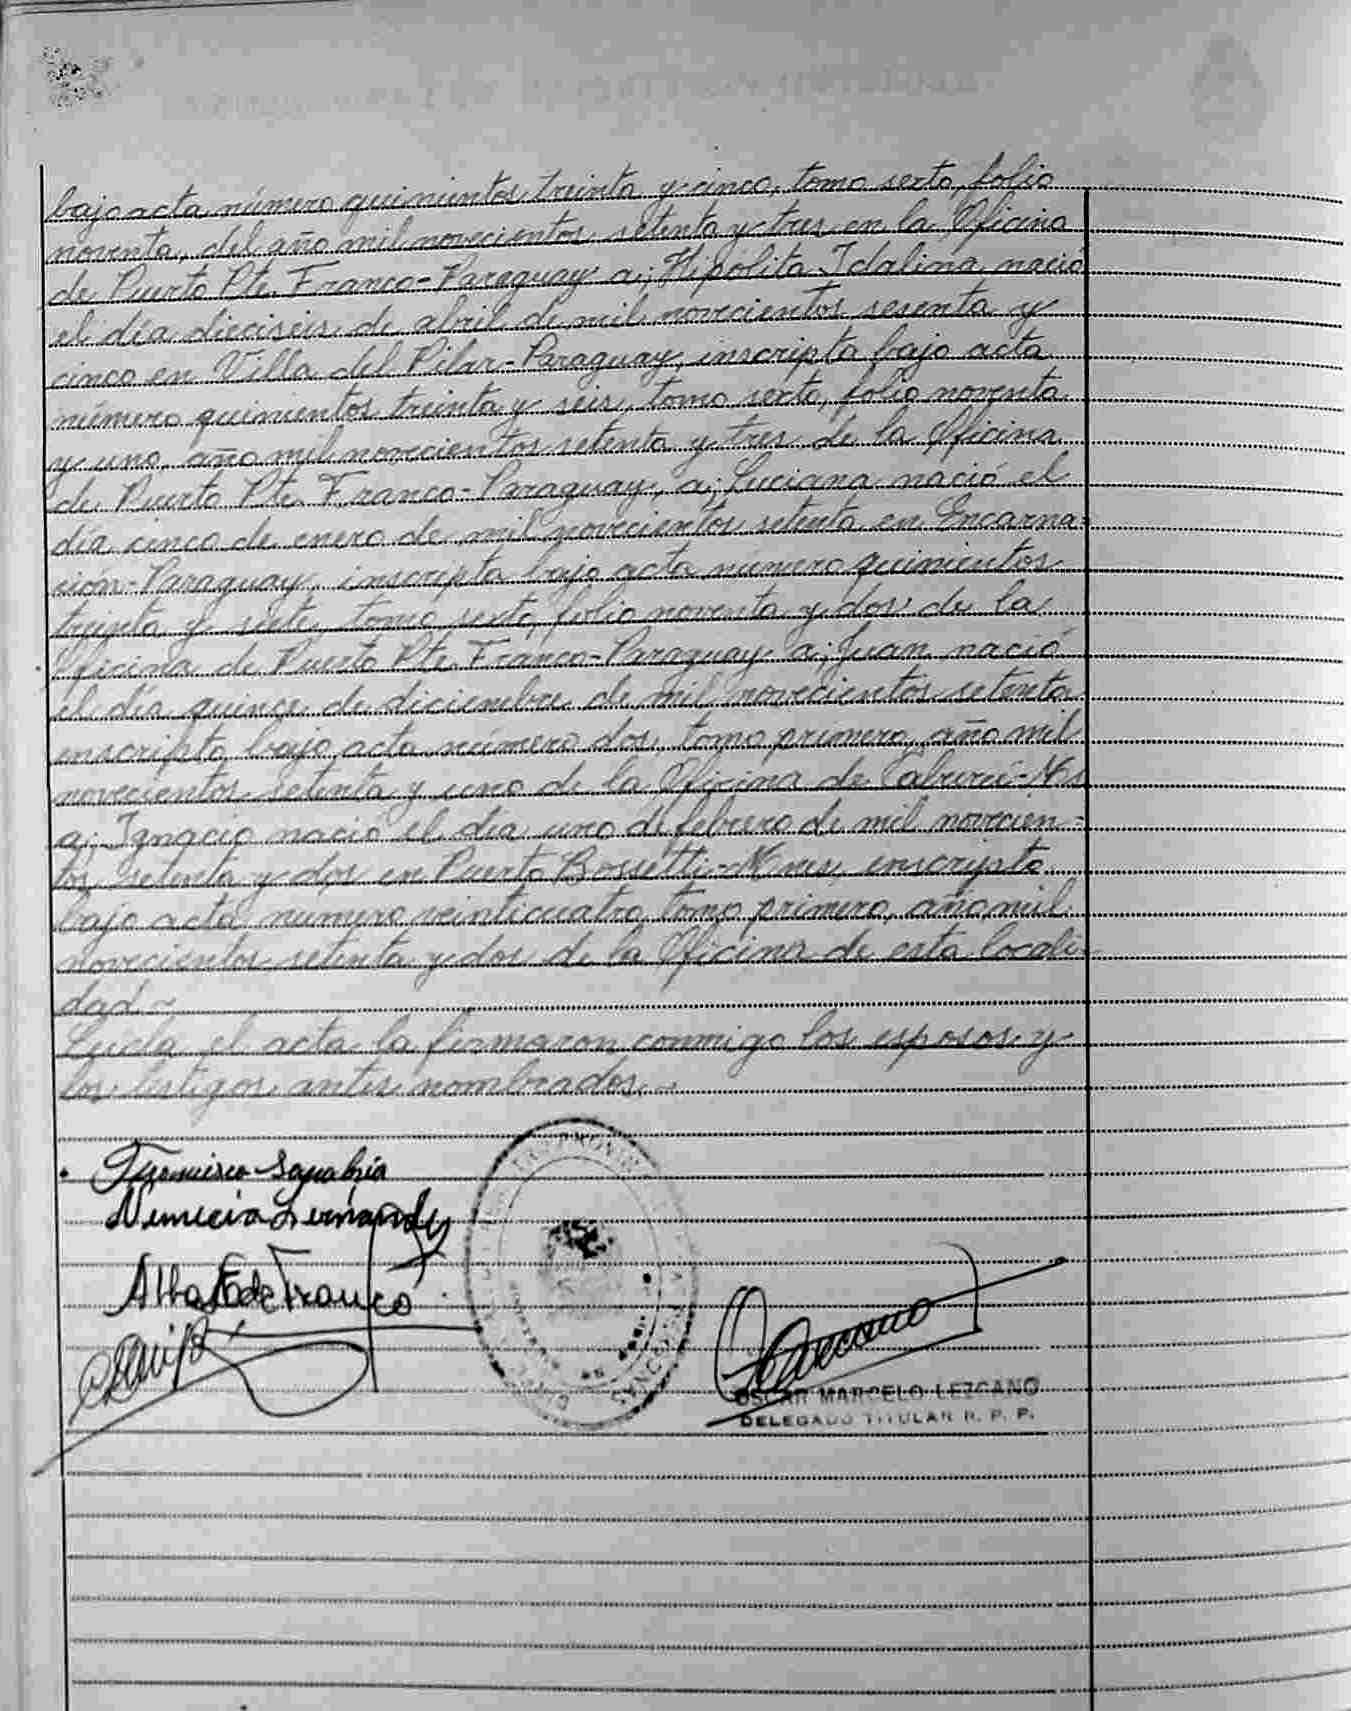 bajo acta número quinientos treinta y cinco, tomo sexto, folio
noventa, del año mil novecientos setenta y tres en la Oficina
de Puerto Pte. Franco-Paraguay a; Hipólita Idalina nació
el día dieciseis de abril de mil novecientos sesenta y
cinco en Villa del Pilar-Paraguay, inscripta bajo acta
número quinientos treinta y seis, tomo sexto, folio noventa
y uno, año mil novecientos setenta y tres de la Oficina
de Puerto Pte. Franco-Paraguay, a; Luciana nació el
día cinco de enero de mil novecientos setenta en Encarna=
ción-Paraguay, inscripta bajo acta número quinientos
treinta y siete, tomo sexto, folio noventa y dos de la
Oficina de Puerto Pte. Franco-Paraguay a; Juan nació
el día quince de diciembre de mil novecientos setenta
inscripto bajo acta número dos, tomo primero, año mil
novecientos setenta y uno de la Oficina de Caburei-Ms
a; Ignacio nació el día uno de febrero de mil novecien=
tos setenta y dos en Puerto Bossetti-Mnes, inscripto
bajo acta número veinticuatro, tomo primero, año mil
novecientos setenta y dos de la Oficina de esta locali-
dad.-
Leída el acta la firmaron conmigo los esposos y
los testigos antes nombrados.-
Francisco Sanabria
Nimecia Fernandez
Alba de Franco
Lezcano
OSCAR MARCELO LEZCANO
DELEGADO TITULAR R. P. P.